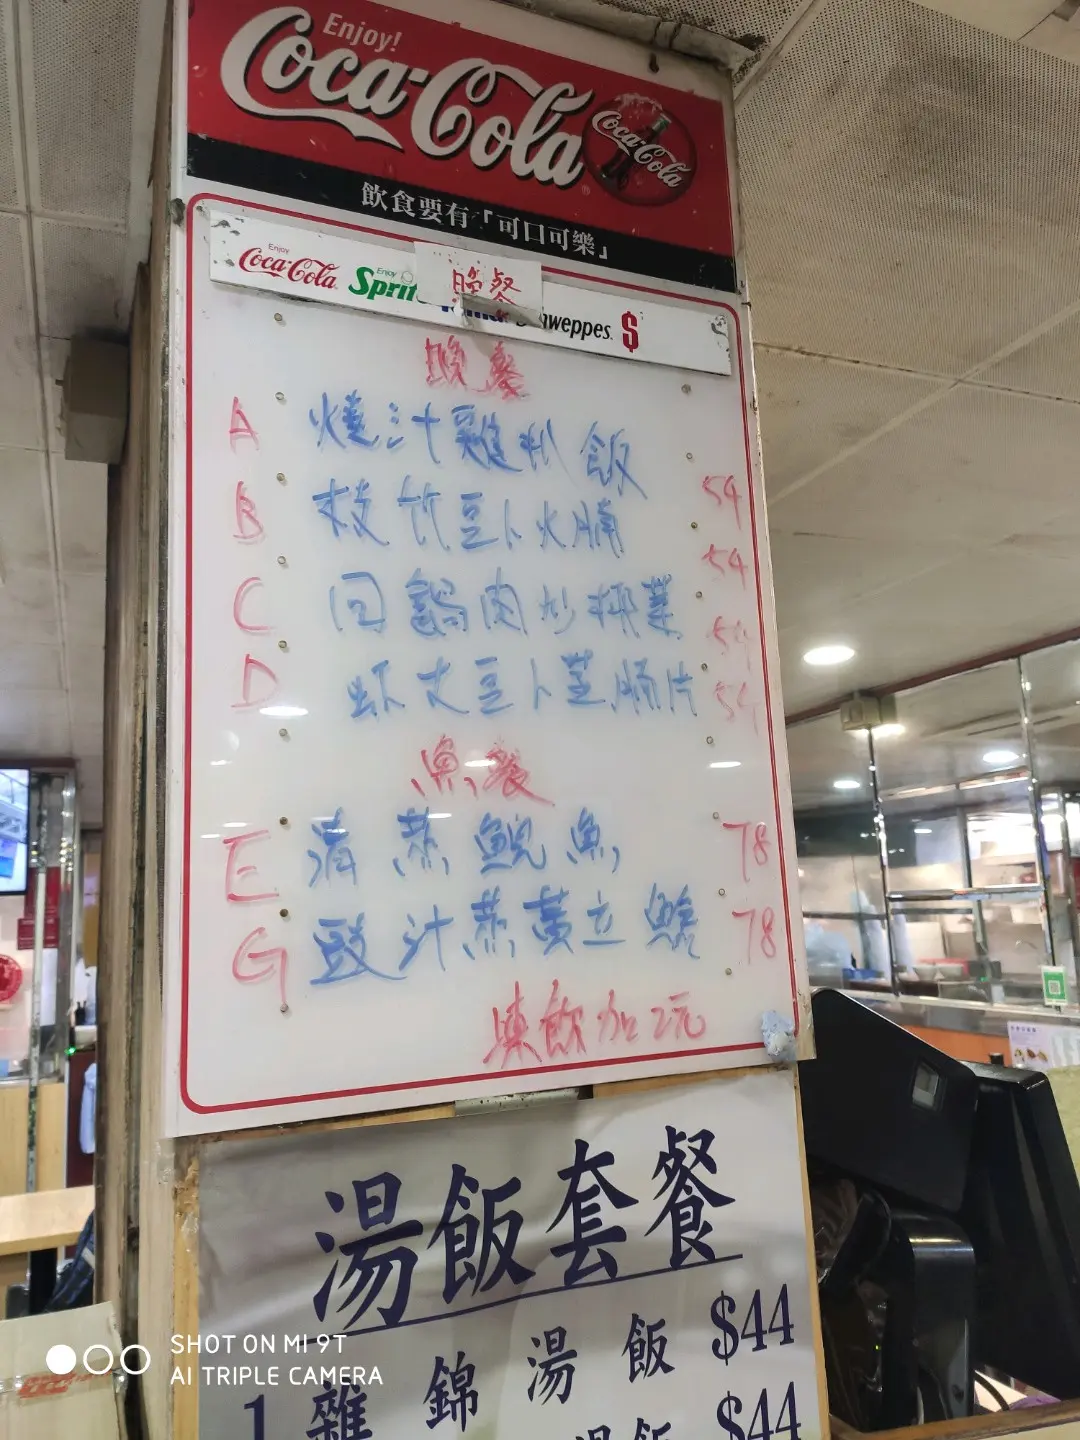 Enjoy!
Coca-Cola
Coca-Cola
飲食要有「可口可樂」
Enjoy
Coca-Cola
Enjoy
Sprit
晚餐
hweppes
$
晚餐
A 燒汁雞扒飯 54
B 枝竹豆卜火腩 54
C 回鍋肉炒椰菜 54
D 虾丸豆卜 腸片 54
魚餐
E 清蒸鯇魚 78
G 豉汁蒸黃立鯧 78
凍飲加2元
湯飯套餐
1 雜錦湯飯 $44
湯飯 $44
SHOT ON MI 9T
AI TRIPLE CAMERA